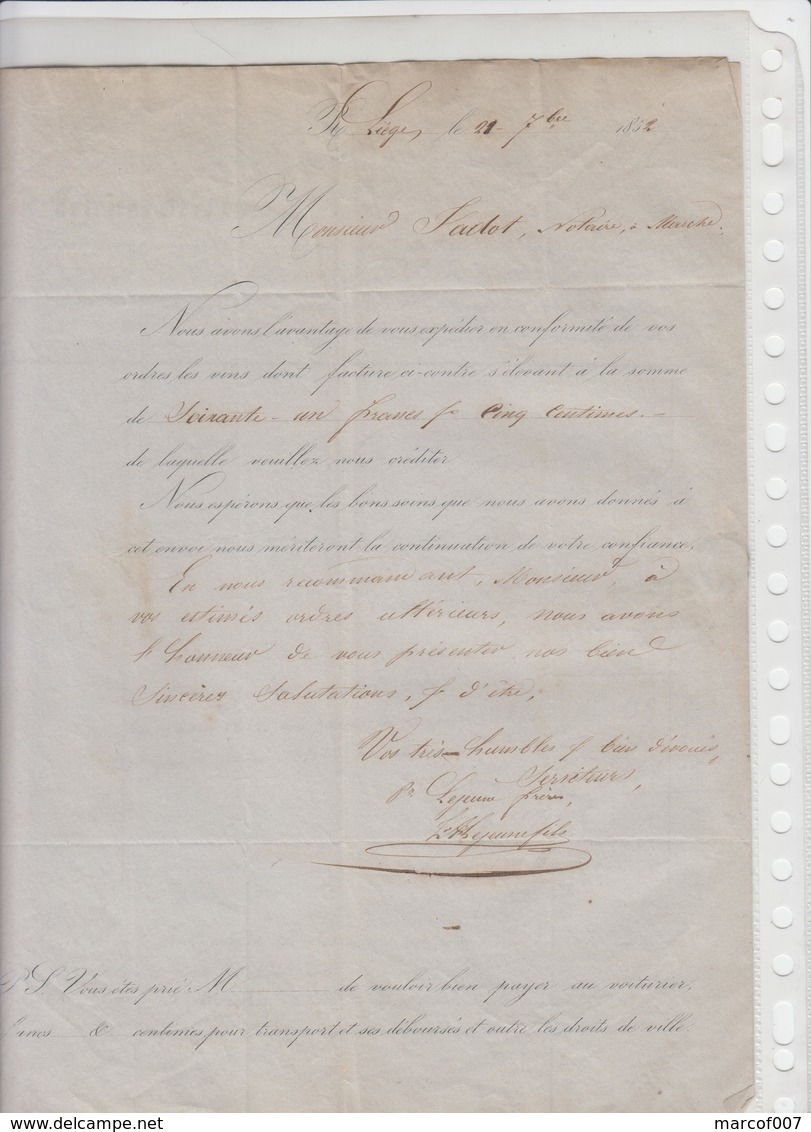 Liège, le 21 7bre 1852
Monsieur Jadot, Notaire, à Marche.
Nous avons l'avantage de vous expédier en conformité de vos
ordres les vins dont facture ci-contre s'élevant à la somme
de Soixante-un francs & Cinq Centimes.-
de laquelle veuillez nous créditer
Nous espérons que les bons soins que nous avons donnés à
cet envoi nous mériteront la continuation de votre confiance,
En nous recommandant, Monsieur, à
vos estimés ordres ultérieurs, nous avons
l'honneur de vous présenter nos bien
Sincères Salutations, & d'être,
Vos très-humbles & bien dévoués,
Serviteurs,
Pr. Lejeune frères,
Lejeune fils
P.S. Vous êtes prié M de vouloir bien payer au voiturier,
francs & centimes pour transport et ses déboursés et outre les droits de ville.
marcof007